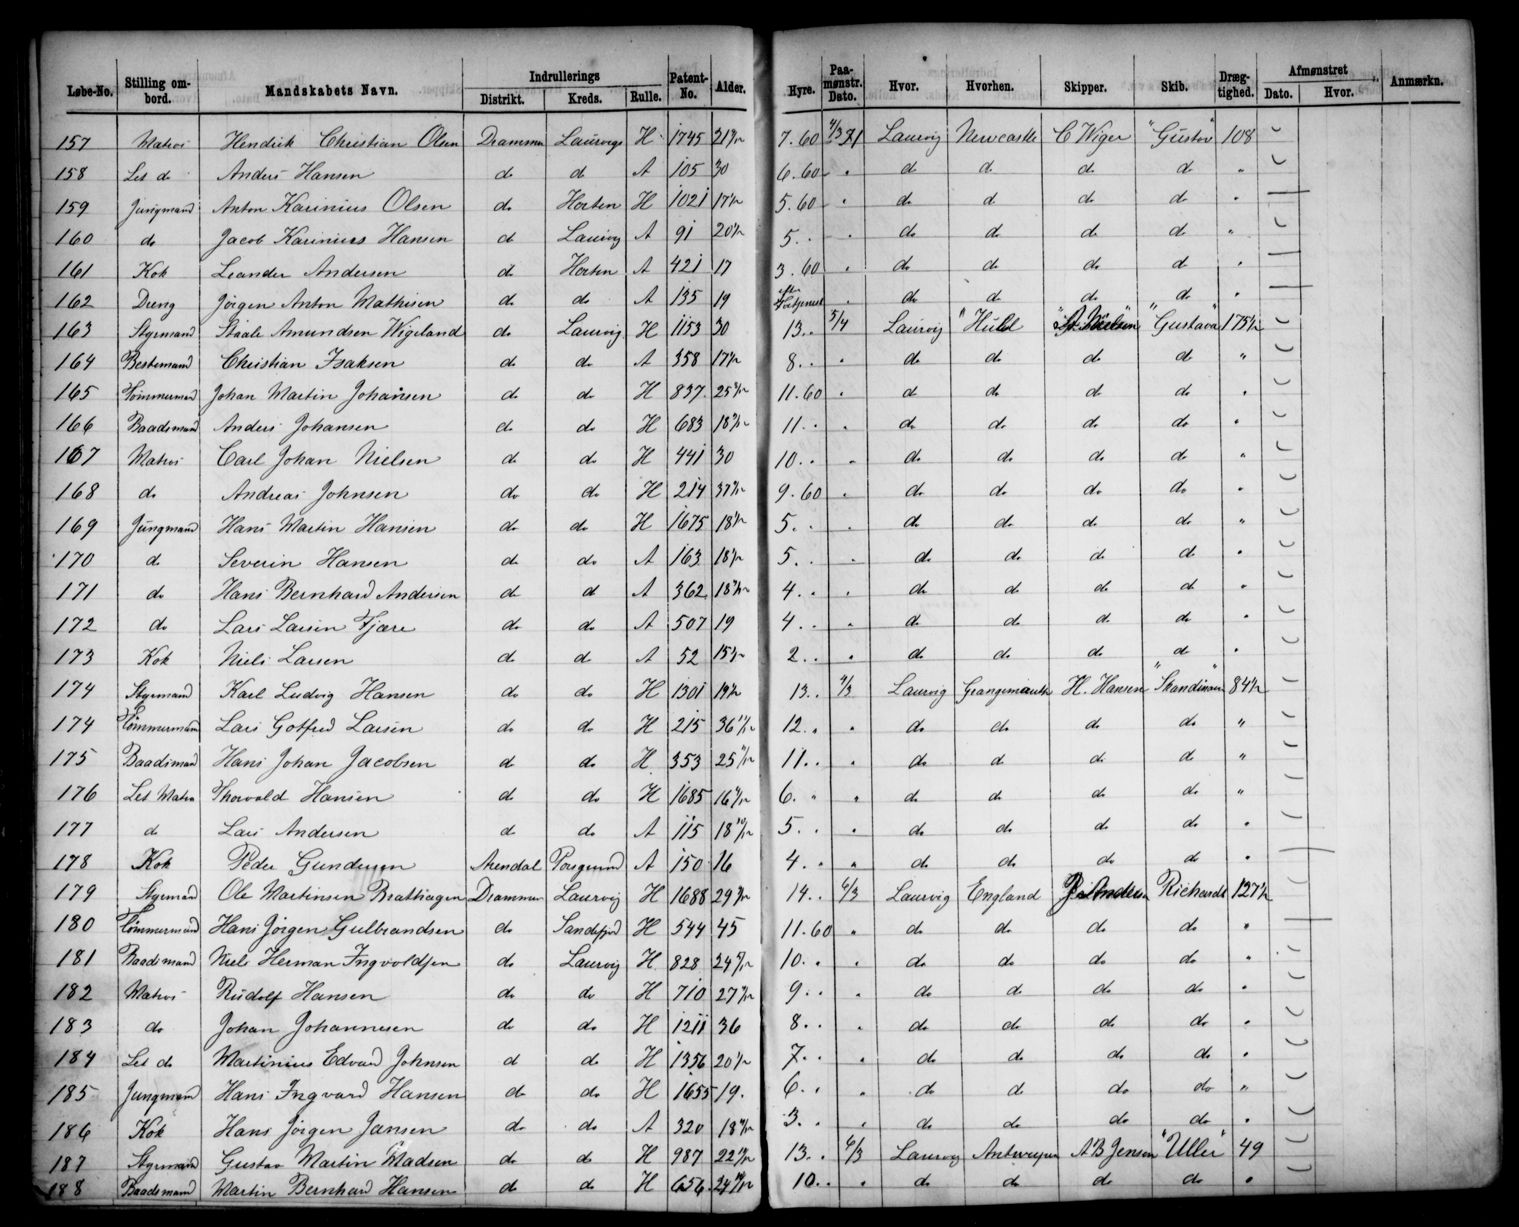 Løbe-No. Stilling ombord. Mandskabets Navn. Indrullerings Distrikt. Kreds. Rulle. Patent-No. Alder. Hyre. Paamønstr. Dato. Hvor. Hvorhen. Skipper. Skib. Drægtighed. Afmønstret Dato. Hvor. Anmærkn.
157 Matros Hendrik Christian Olsen Drammen Laurvigs H 1745 7.60 Laurvig Newcastle C Wiger "Gustav" 108
158 Let do Anders Hansen do do A 105 30 6.60 " do do do do "
159 Jungmand Anton Karinius Olsen do Horten H 1021 5.60 " do d do do "
160 do Jacob Karinius Hansen do Laurvig A 91 5. " do do do do "
161 Kok Leander Andersen do Horten A 421 17 3.60 " do do do do "
162 Dreng Jørgen Anton Mathisen do do A 135 19 " do do do do "
163 Styrmand Staale Amundsen Wigeland do Laurvig H 1153 30 13.. 5/4 Laurvig "Huld "Gustava" 175½
164 Bestemand Christian Isaksen do do A 358 8.. " do do do do "
165 Tømmermand Johan Martin Johansen do do H 837 11.60 " do do do do "
166 Baadsmand Anders Johansen do do H 683 11.. " do do do do "
167 Matros Carl Johan Nielsen do do H 441 30 10.. " do do do do "
168 do Andreas Johnsen do do H 214 9.60 " do do do do "
169 Jungmand Hans Martin Hansen do do H 1675 5.. " do do do do "
170 do Severin Hansen do do A 163 5. " do do do do "
171 do Hans Bernhard Andersen do do A 362 4.. " do do do do "
172 do Lars Larsen Tjære do do A 507 19 4.. " do do do do "
173 Kok Niels Larsen do do A 52 2.. " do do do do "
174 Styrmand Karl Ludvig Hansen do do H 1301 13.. Laurvig Grangemouth H. Hansen "Skandinav" 84½
174 Tømmermand Lars Gotfred Larsen do do H 215 12.. " do do do do "
175 Baadsmand Hans Johan Jacobsen do do H 353 11.. " do do do do "
176 Let Matros Thorvald Hansen do do H 1685 6.. " do do do do "
177 do Lars Andersen do do A 115 5.. " do do do do
178 Kok Peder Gundersen Arendal Porsgrund A 150 16 4.. " do do do do "
179 Styrmand Ole Martinsen Brathagen Drammen Laurvig H 1688 14.. 6/3 Laurvig England Andersen Richards 127½
180 Tømmermand Hans Jørgen Gulbrandsen do Sandefjord H 544 45 11.60 " do do do do "
181 Baadsmand Niels Herman Ingvoldsen do Laurvig H 828 10.. " do do do do "
182 Matros Rudolf Hansen do do H 710 9.. " do do do do "
183 do Johan Johannesen do do H 1211 36 8.. " do do do do "
184 Let do Martinius Edvard Johnsen do do H 1356 7.. " do do do do "
185 Jungmand Hans Ingvard Hansen do do H 1655 19. 6.. " do do do do "
186 Kok Hans Jørgen Jansen do do A 320 3.. " do do do do "
187 Styrmand Gustav Martin Madsen do do H 987 13.. 6/3 Laurvig Antwerpen A B Jensen "Uller" 49
188 Baadsmand Martin Bernhard Hansen do do H 656 10.. " do do do do "